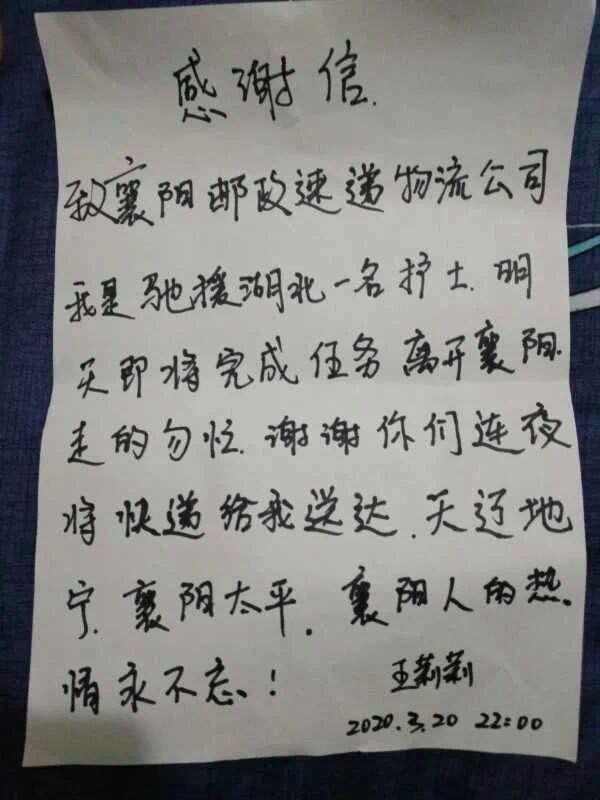 感谢信.
致襄阳邮政速递物流公司
我是驰援湖北一名护士.明
天即将完成任务离开襄阳.
走的匆忙.谢谢你们连夜
将快递给我送达.天辽地
宁.襄阳太平.襄阳人的热
情永不忘!
王莉莉
2020.3.20 22:00